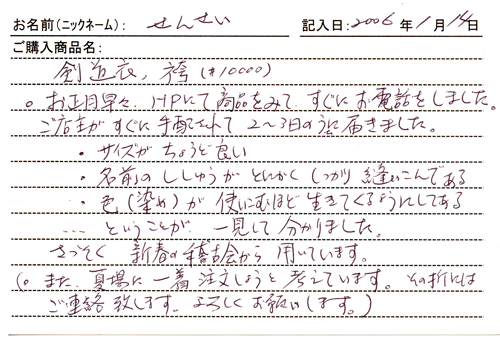 お名前(ニックネーム): せんせい 記入日:2006年1月14日
ご購入商品名:
剣道衣、袴(¥10000)
○お正月早々、HPにて商品をみて、すぐにお電話をしました。
ご店主がすぐに手配されて2〜3日のうちに届きました。
・サイズがちょうど良い
・名前のししゅうがとにかくしっかり縫いこんである
・色(染め)が使いこむほど生きてくるようにしてある
…ということが、一見して分かりました。
さっそく新春の稽古会から用いています。
(○また、夏場に一着注文しようと考えています。その折には
ご連絡致します。よろしくお願いします。)